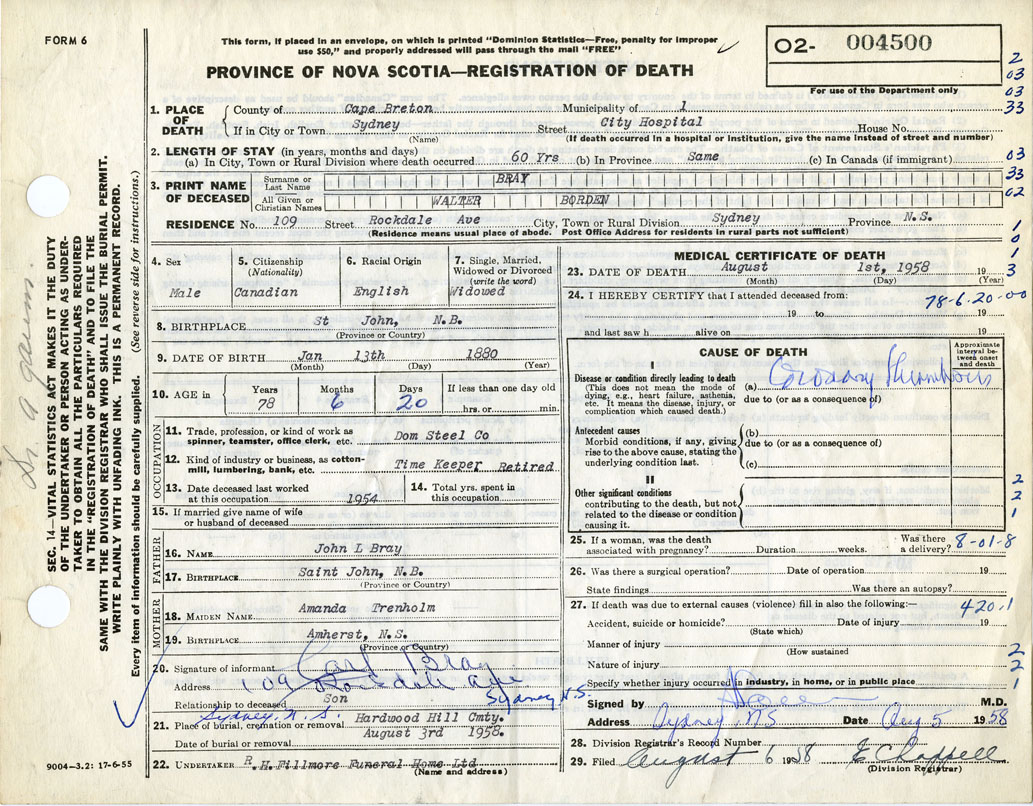 FORM 6
This form, if placed in an envelope, on which is printed "Dominion Statistics—Free, penalty for improper
use $50," and properly addressed will pass through the mail "FREE"
O2- 004500
For use of the Department only
PROVINCE OF NOVA SCOTIA—REGISTRATION OF DEATH
2
03
03
33
1. PLACE OF DEATH
County of Cape Breton Municipality of 1
If in City or Town Sydney Street City Hospital House No.
(Name) (If death occurred in a hospital or institution, give the name instead of street and number)
2. LENGTH OF STAY (in years, months and days)
(a) In City, Town or Rural Division where death occurred 60 Yrs (b) In Province Same (c) In Canada (if immigrant)
03
3. PRINT NAME OF DECEASED
Surname or Last Name BRAY
33
All Given or Christian Names WALTER BORDEN
02
RESIDENCE No. 109 Street Rockdale Ave City, Town or Rural Division Sydney Province N.S.
(Residence means usual place of abode. Post Office Address for residents in rural parts not sufficient)
1
0
1
3
4. Sex
Male
5. Citizenship
(Nationality)
Canadian
6. Racial Origin
English
7. Single, Married,
Widowed or Divorced
(write the word)
Widowed
8. BIRTHPLACE St John, N.B.
(Province or Country)
9. DATE OF BIRTH Jan 13th 1880
(Month) (Day) (Year)
10. AGE in
Years Months Days If less than one day old
78 6 20 hrs. or min.
OCCUPATION
11. Trade, profession, or kind of work as
spinner, teamster, office clerk, etc. Dom Steel Co
12. Kind of industry or business, as cotton-
mill, lumbering, bank, etc. Time Keeper Retired
13. Date deceased last worked
at this occupation 1954
14. Total yrs. spent in
this occupation
15. If married give name of wife
or husband of deceased
FATHER
16. NAME John L Bray
17. BIRTHPLACE Saint John, N.B.
(Province or Country)
MOTHER
18. MAIDEN NAME Amanda Trenholm
19. BIRTHPLACE Amherst, N.S.
(Province or Country)
20. Signature of informant Carl Bray
Address 109 Rockdale Ave
Sydney N.S.
Relationship to deceased Son
Sydney, N.S.
21. Place of burial, cremation or removal Hardwood Hill Cmty.
Date of burial or removal August 3rd 1958.
22. UNDERTAKER R.H. Fillmore Funeral Home Ltd
(Name and address)
MEDICAL CERTIFICATE OF DEATH
23. DATE OF DEATH August 1st, 1958 19
(Month) (Day) (Year)
24. I HEREBY CERTIFY that I attended deceased from: 78-6-20-00
19 to 19
and last saw h alive on 19
CAUSE OF DEATH
Approximate
interval be-
tween onset
and death
I
Disease or condition directly leading to death
(This does not mean the mode of
dying, e.g., heart failure, asthenia,
etc. It means the disease, injury, or
complication which caused death.)
(a) Coronary Thrombosis
due to (or as a consequence of)
Antecedent causes
Morbid conditions, if any, giving
rise to the above cause, stating the
underlying condition last.
(b)
due to (or as a consequence of)
(c)
II
Other significant conditions
contributing to the death, but not
related to the disease or condition
causing it.
2
2
1
25. If a woman, was the death
associated with pregnancy? Duration weeks. Was there
a delivery? 8-01-8
26. Was there a surgical operation? Date of operation 19
State findings Was there an autopsy?
27. If death was due to external causes (violence) fill in also the following:—
420.1
Accident, suicide or homicide? Date of injury 19
(State which)
Manner of injury
(How sustained
Nature of injury
Specify whether injury occurred in industry, in home, or in public place
2
2
1
Signed by M.D.
Address Sydney NS Date Aug 5 1958
28. Division Registrar's Record Number
29. Filed August 6 1958
(Division Registrar)
SEC. 14—VITAL STATISTICS ACT MAKES IT THE DUTY
OF THE UNDERTAKER OR PERSON ACTING AS UNDER-
TAKER TO OBTAIN ALL THE PARTICULARS REQUIRED
IN THE "REGISTRATION OF DEATH" AND TO FILE THE
SAME WITH THE DIVISION REGISTRAR WHO SHALL ISSUE THE BURIAL PERMIT.
WRITE PLAINLY WITH UNFADING INK. THIS IS A PERMANENT RECORD.
Every item of information should be carefully supplied. (See reverse side for instructions.)
9004-3.2: 17-6-55